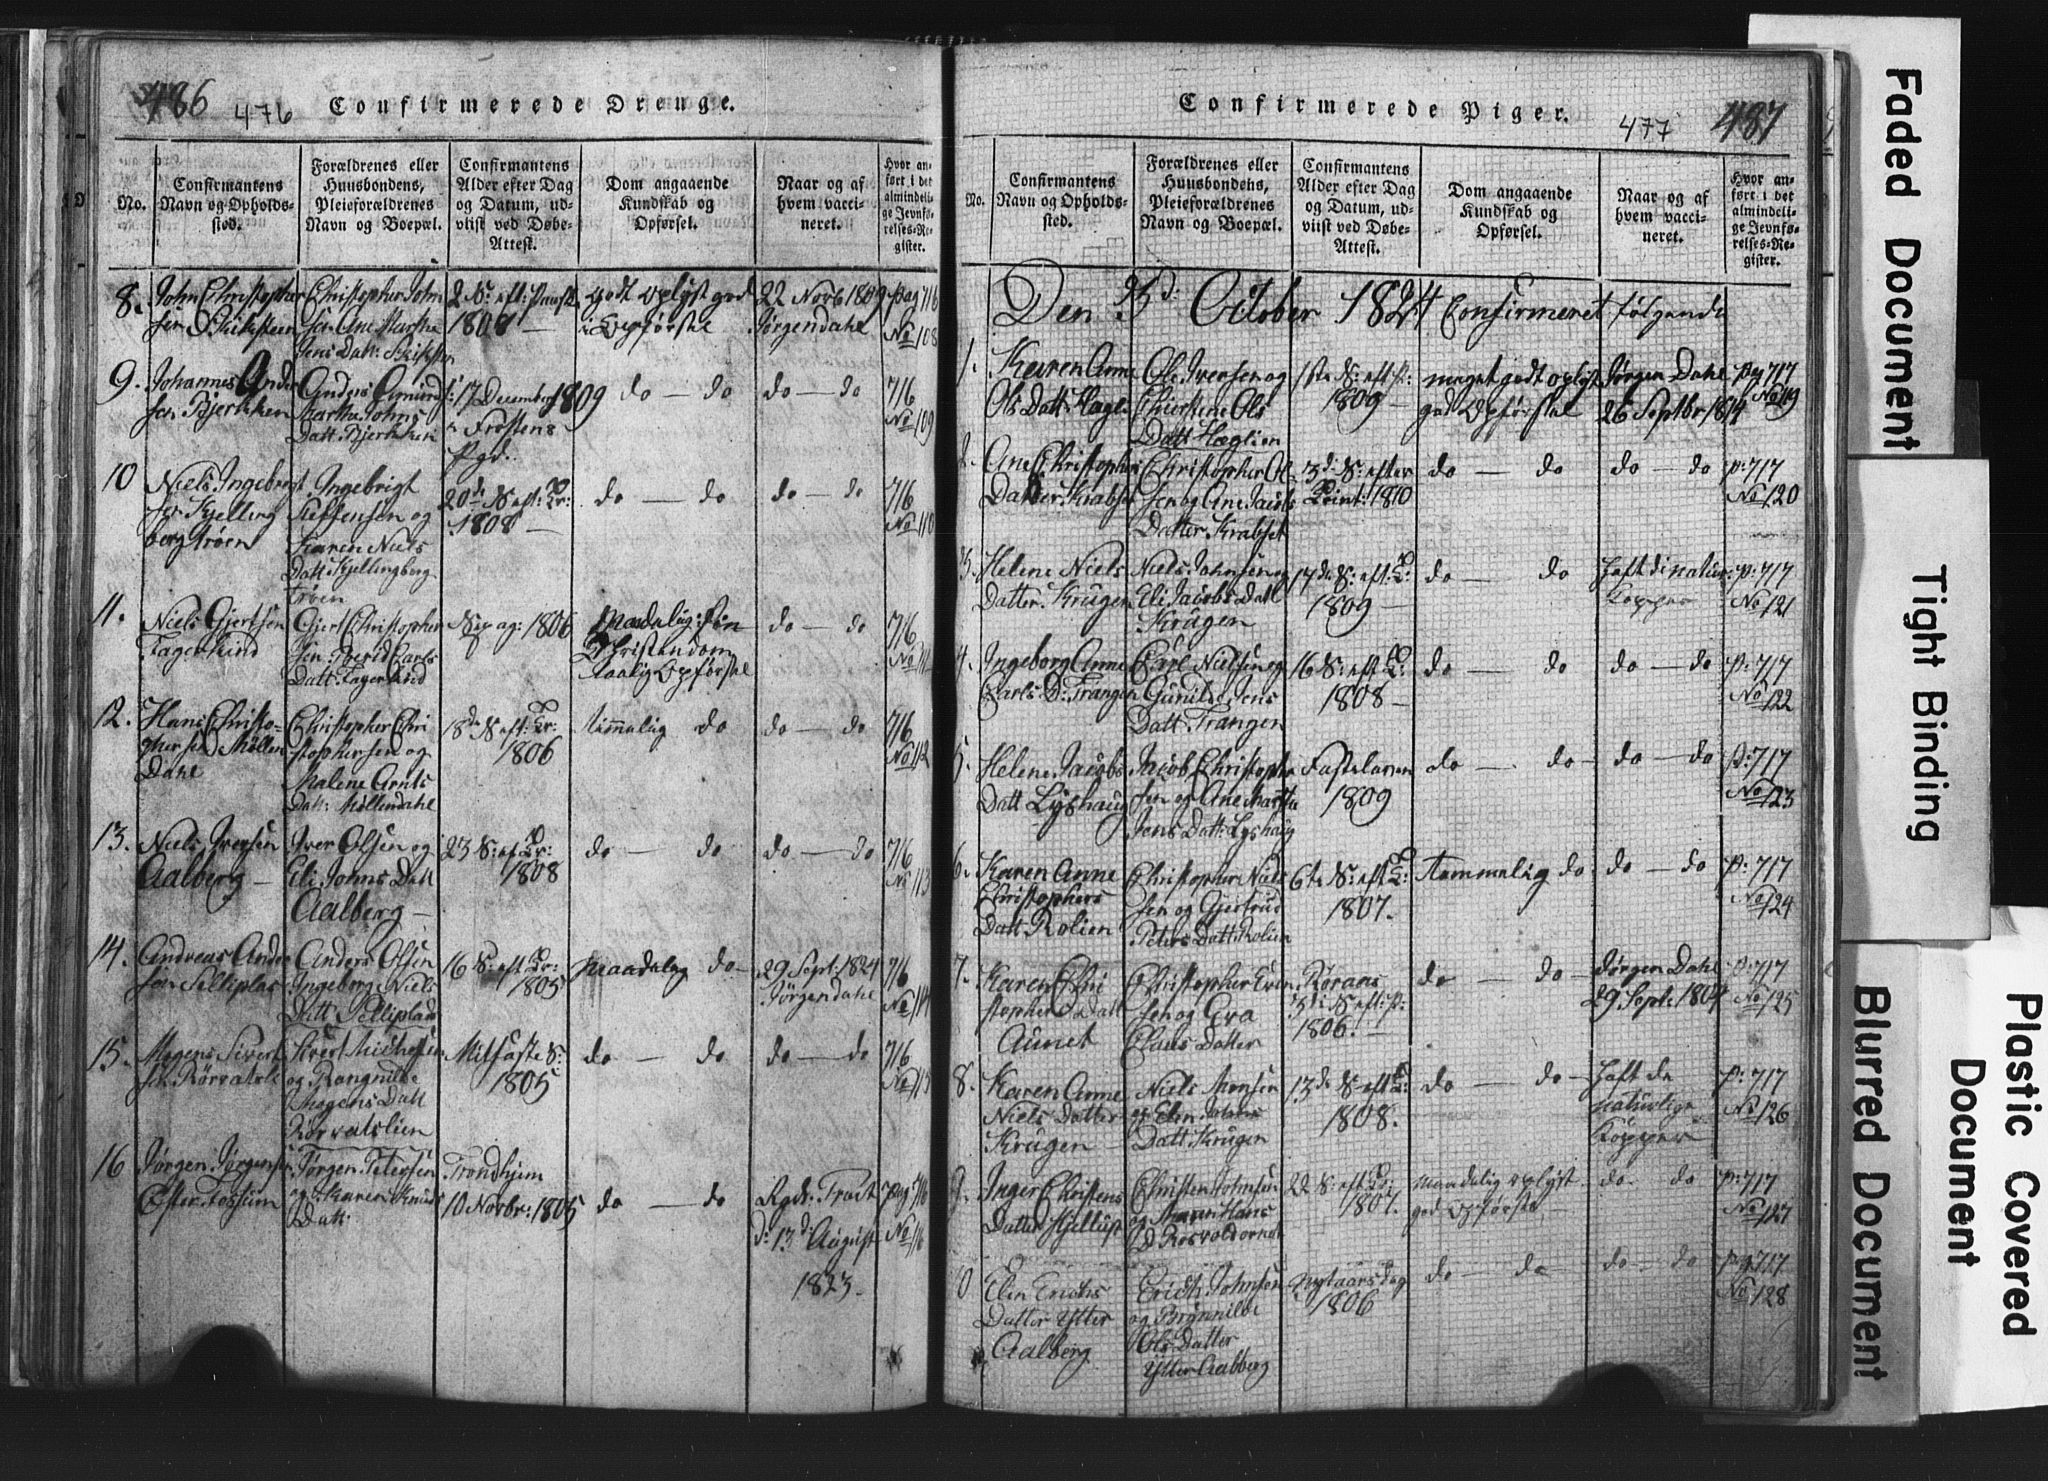 486
476
Confirmerede Drenge.
No.
Confirmantens Navn og Opholdssted.
Forældrenes eller Huusbondens, Pleieforældrenes Navn og Boepæl.
Confirmantens Alder efter Dag og Datum, udviist ved Døbe-Attest.
Dom angaaende Kundskab og Opførsel.
Naar og af hvem vaccineret.
Hvor anført i det almindelige Jevnførelses-Register.
8. John Christopher Christopher John 2 S: eft: Paaske godt oplyst god 22 Novb 1809 pag 716
sen 1808 — i Opførsel Jørgen Dahl No 108
Jens Datt:
9. Johannes Ander Anders Amund 17 December 1809 do — do do — do 716
sen Bjerkken Martha Johns Frostens No 109
Datt Bjerkken Pgd.
10 Niels Ingebrigt Ingebrigt 20de S eft: Tr: do — do do — do 716
sen Kjelling Steffensen og 1808 — No 110
berg trøen Karen Niels
Datt Kjellingberg
Trøen
11. Niels Gjertsen Gjert Christopher 1806 Maadelig i sin do — do 716
Fagerlund sen Berid Carls Christendom No 111
Datt: Fagerlund taalig Opførsel
12. Hans Christo- Christopher Chri 18de S eft: Tr: temmelig do do — do 716
phersen Møllen stophersen og 1806 No 112
Dahl Malene Arnts
Datt: Møllendahl
13. Niels Iversen Iver Olsen og 23 S: eft Tr: do — do do — do 716
Aalberg — Eli Johns Datt 1808 No 113
Aalberg —
14. Andreas Ander Anders Olsen 16 S: eft Tr: maadelig do — 29 Sept: 1824 716
sen Selliplas Ingeborg Niels 1805 Jørgen Dahl No 114
Datt Selliplads
15. Mogens Sivert Sivert Michelsen Mitfaste S: do — do do — do 716
sen og Rangnild 1805 No 115
Mogens Datt
16 Jørgen Jørgensen Jørgen Petersen Trondhjem
Øster Fostum og Karen Knuds 10 Novbr: 1805 do — do pag 716
Datt: d: 13d August No 116
1823.
Confirmerede Piger.
477
487
No.
Confirmantens Navn og Opholdssted.
Forældrenes eller Huusbondens, Pleieforældrenes Navn og Boepæl.
Confirmantens Alder efter Dag og Datum, udviist ved Døbe-Attest.
Dom angaaende Kundskab og Opførsel.
Naar og af hvem vaccineret.
Hvor anført i det almindelige Jevnførelses-Register.
Den October 1824 Confirmeret følgende
1. Karen Anne Ole Iversen og 1ste S: eft p: meget godt oplyst Jørgen Dahl Pag 717
Ols Datt Hagli Kierstene Ols 1809 — god Opførsel 26 Septbr 1814 No 119
Datt Haglien
2. Ane Christophers Christopher Ol 3d S: efter do — do do — do p: 717
Datter Krabset sen og Ane Jacobs Trinit: 1810 No 120
Datter Krabset
3. Helene Niels Niels Johnsen og 17de S: eft: Tr: do — do Haft de natur: p: 717
Datter Krugen Eli Jacobs Datt 1809 — Kopper No 121
Krugen
4. Ingeborg Anne Carl Nielsen og 16 S: eft Tr: do — do do — do p: 717
Carls D: Trangen Gunild Jens 1808 — No 122
Datt Trangen
5. Helene Jacobs Jacob Christopher Fastelaven do — do — do — do p: 717
Datt Lyshaug sen og Ane Martha 1809 No 123
Jens Datt: Lyshaug
6. Karen Anne Christopher Niels 6te S: eft Tr: Temmelig do do — do p: 717
Christophers sen og Gjertrud 1807. No 124
Datt Rolien Peters Datt Rolien
7. Karen Chri Christopher Even Røraas do — do — Jørgen Dahl p: 717
stopher Datt sen og Eva S: eft: p: 29 Sept: No 125
Aunet Claus Datter 1806.
8. Karen Anne Niels Monsen 13de S: eft Tr: do — do — Haft de p: 717
Niels Datter og Elen Johns 1808. naturlige No 126
Krugen Datt Krugen Kopper
9. Inger Christens Christen Johnsen 22 S: eft Tr: maadelig oplyst do — do p: 717
Datter og Maren Hans 1807. god Opførsel — No 127
D
10 Elen Erichs Erich Johnsen Nytaarsdag do — do do — do pag 717
Datter Ytter og Brønnild 1806 No 128
Aalberg Ols Datter
Ytter Aalberg
Faded Document
Tight Binding
Blurred Document
Plastic Covered Document